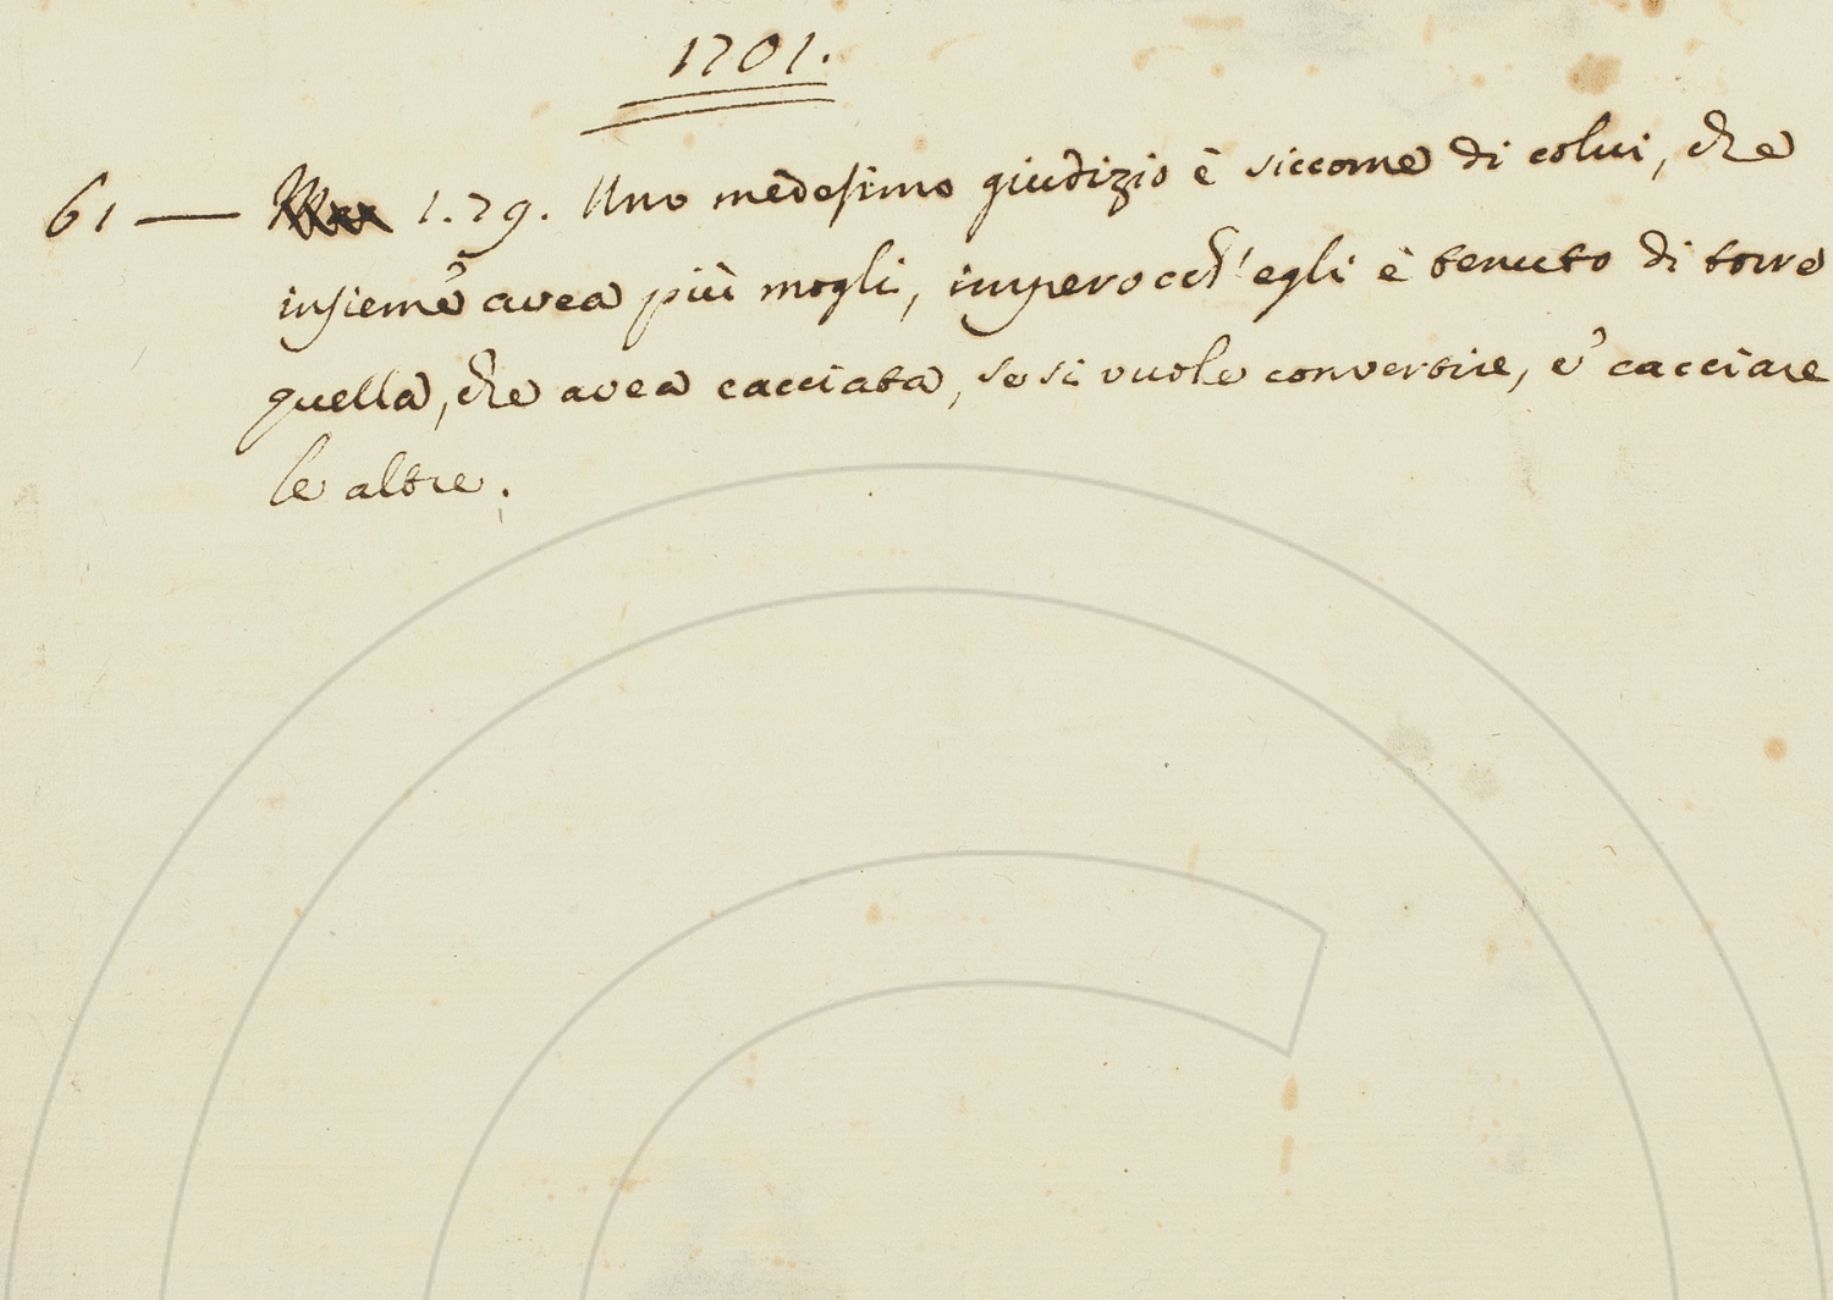 1701.
61 — 1.29. Uno medesimo giudizio è siccome di colui, che
insieme avea più mogli, imperocch' egli è tenuto di torre
quella, che avea cacciata, se si vuole convertire, e cacciare
le altre.